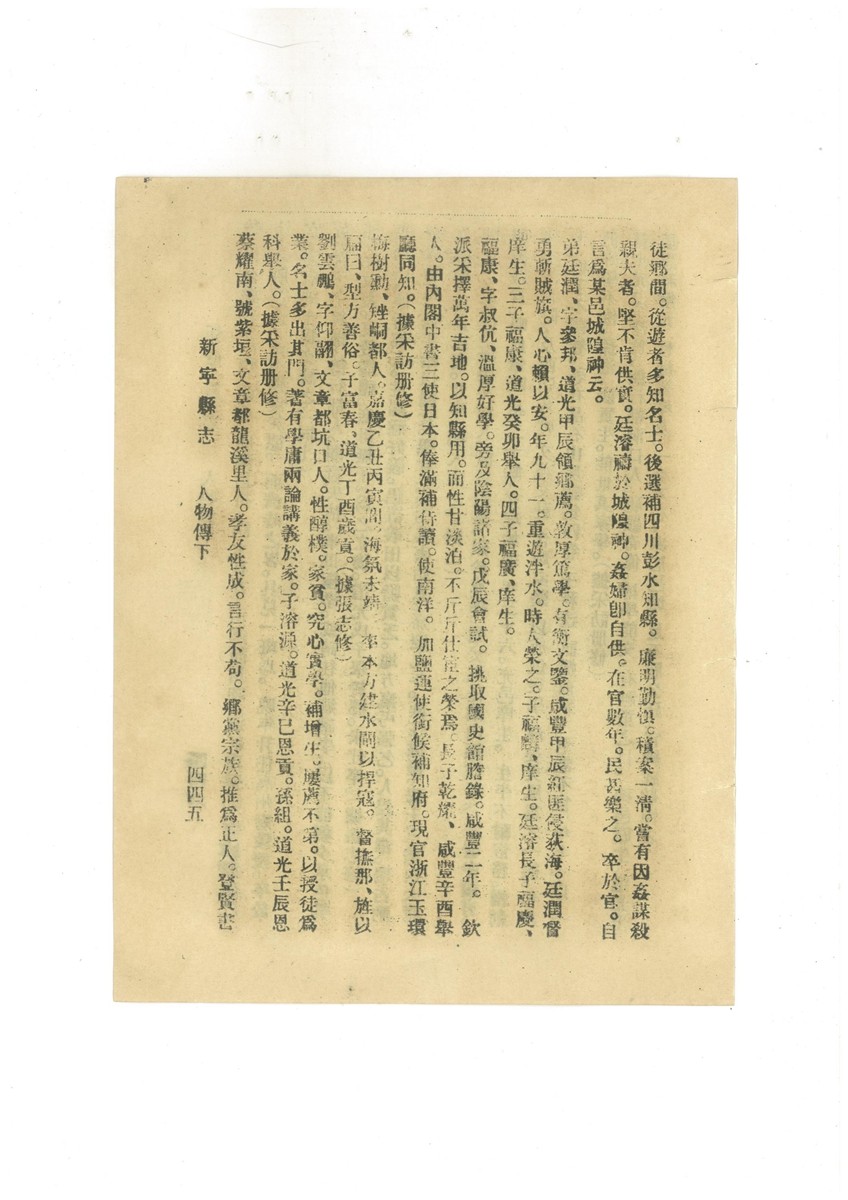 徒鄉間。從遊者多知名士。後選補四川彭水知縣。廉明勤慎。積案一清。嘗有因姦謀殺
親夫者。堅不肯供實。廷濬禱於城隍神。姦婦卽自供。在官數年。民甚樂之。卒於官。自
言爲某邑城隍神云。
弟廷潤、字參邦、道光甲辰領鄉薦。敦厚篤學。有衡文鑒。咸豐甲辰紅匪侵荻海。廷潤督
勇斬賊旗。人心賴以安。年九十一。重遊泮水。時人榮之。子福疇、庠生。廷濬長子福慶、
庠生。三子福康、道光癸卯舉人。四子福廣、庠生。
福康、字叔伉、溫厚好學。旁及陰陽諸家。戊辰會試。挑取國史館謄錄。咸豐二年。欽
派采擇萬年吉地。以知縣用。而性甘淡泊。不斤斤仕宦之榮焉。長子乾燿、咸豐辛酉舉
人。由內閣中書三使日本。俸滿補侍讀。使南洋。加鹽運使銜候補知府。現官浙江玉環
廳同知。（據采訪册修）
梅樹勳、矬峒都人。嘉慶乙丑丙寅間。海氛未靖。率本方建水閘以捍寇。督撫那、旌以
扁曰、型方善俗。子富春、道光丁酉歲貢。（據張志修）
劉雲鵬、字仰翩、文章都坑口人。性醇樸。家貧。究心實學。補增生。屢薦不第。以授徒爲
業。名士多出其門。著有學庸兩論講義於家。子溶源。道光辛巳恩貢。孫組。道光壬辰恩
科舉人。（據采訪册修）
蔡耀南、號紫垣、文章都龍溪里人。孝友性成。言行不苟。鄉黨宗族。推爲正人。登賢書
新寧縣志 人物傳下
四四五